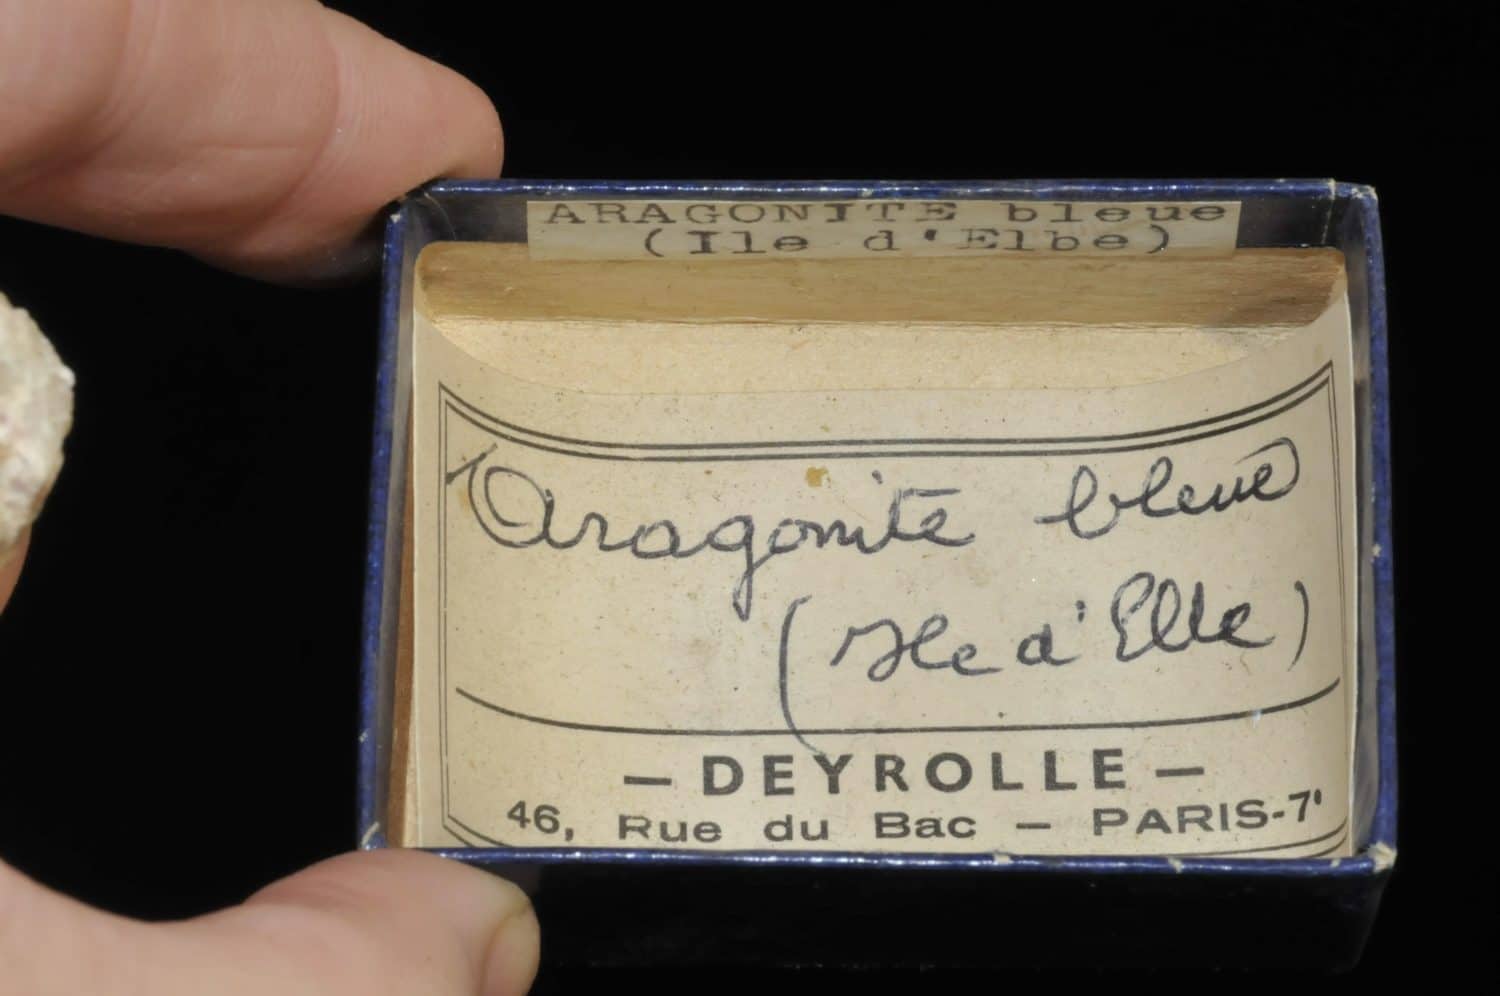 ARAGONITE bleue
(Ile d'Elbe)
Aragonite bleue
(Ile d'Elbe)
— DEYROLLE —
46, Rue du Bac — PARIS-7'